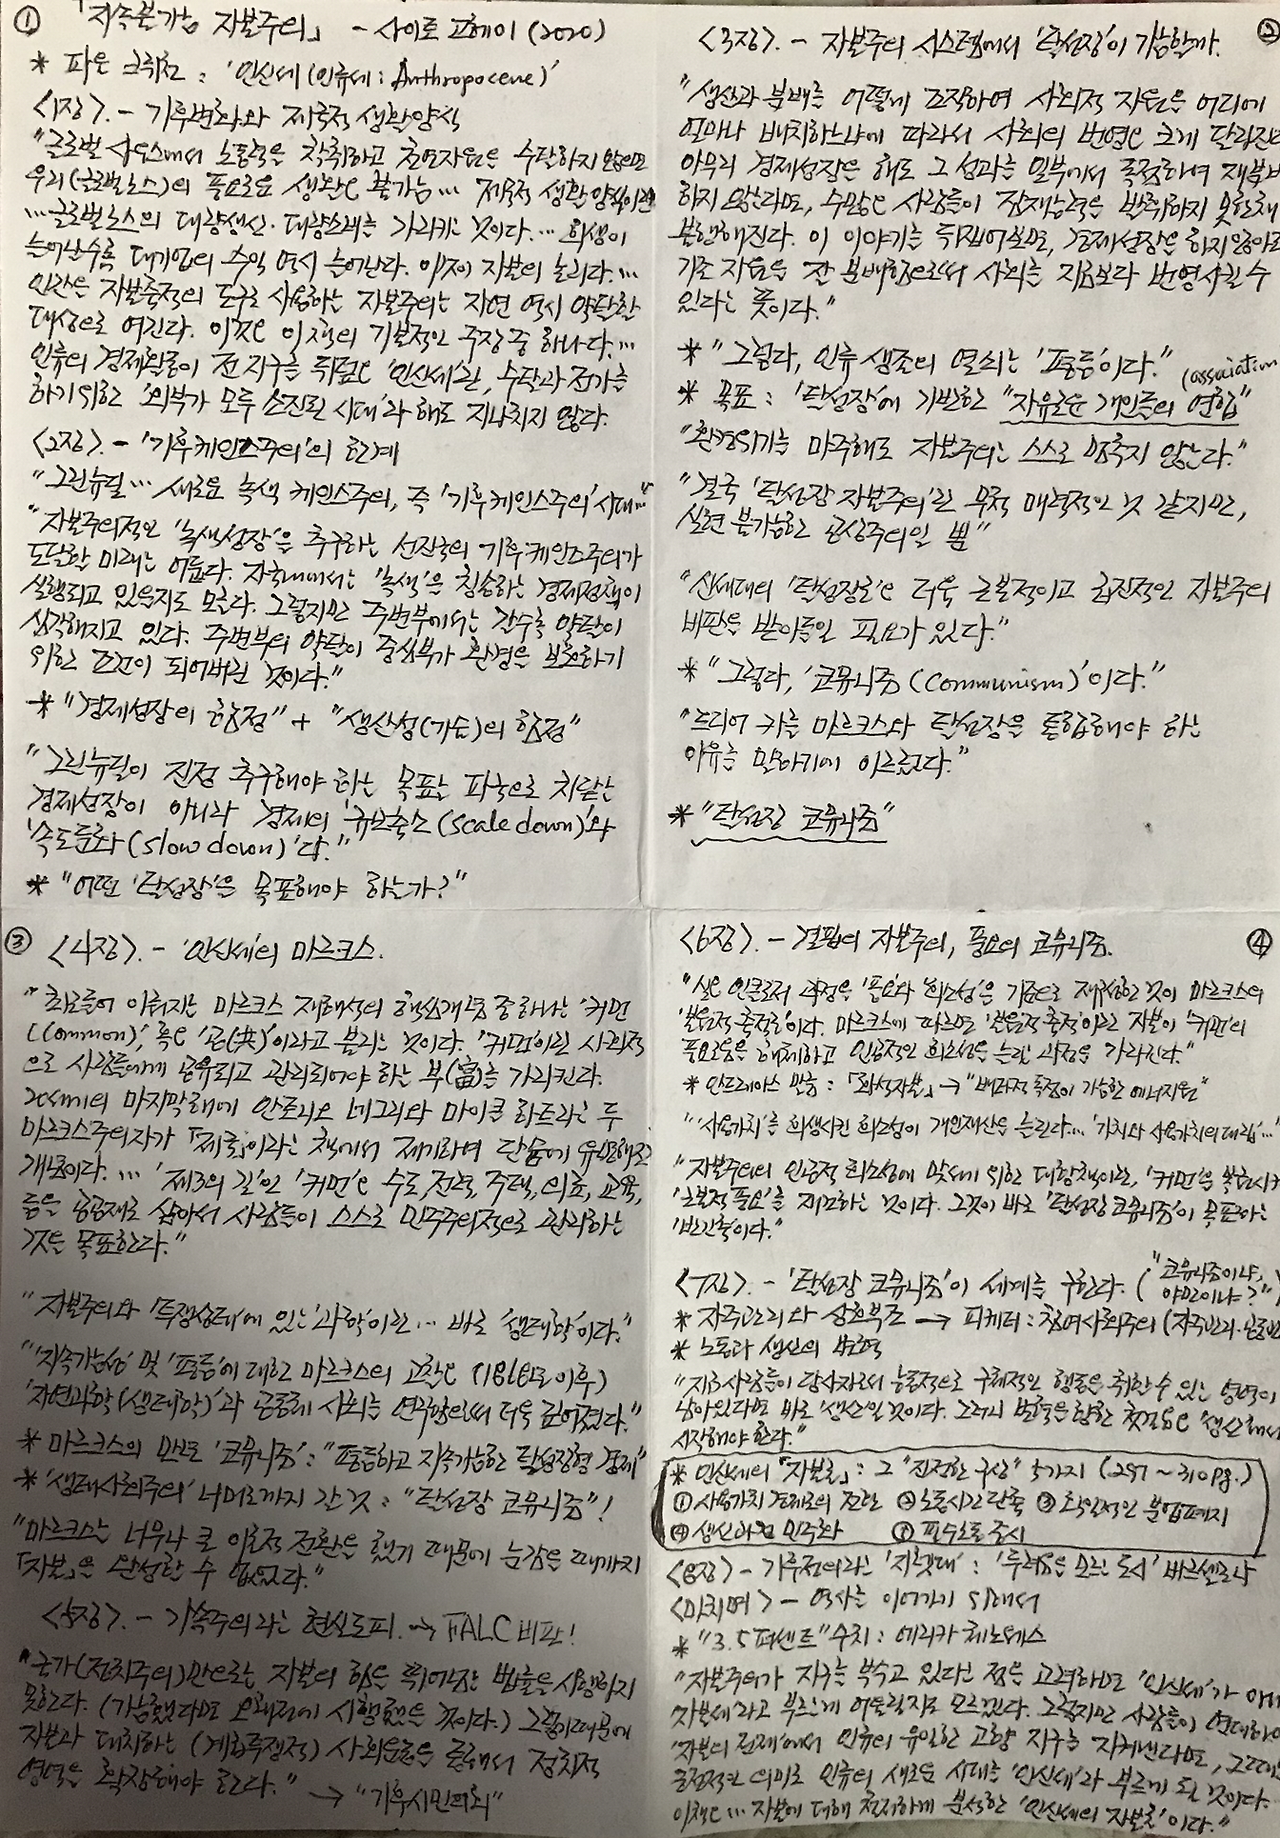 ① 「지속불가능 자본주의」 - 사이토 고헤이 (2020)
* 파울 크뤼천 : '인신세(인류세 : Anthropocene)'
<1장>. - 기후변화와 제국적 생활양식
"글로벌 사우스에서 노동력을 착취하고 천연자원을 수탈하지 않으면
우리(글로벌 노스)의 풍요로운 생활은 불가능… 제국적 생활양식이란
…글로벌 노스의 대량생산·대량소비를 가리키는 것이다.… 희생이
늘어날수록 대기업의 수익 역시 늘어난다. 이것이 자본의 논리다.…
인간을 자본축적의 도구로 사용하는 자본주의는 자연 역시 약탈할
대상으로 여긴다. 이것은 이 책의 기본적인 주장 중 하나다.…
인류의 경제활동이 전 지구를 뒤덮은 '인신세'란, 수탈과 전가를
하기 위한 '외부가 모두 소진된 시대'라 해도 지나치지 않다.
<2장>. - '기후케인스주의'의 한계
"그린뉴딜… 새로운 녹색 케인스주의, 즉 '기후케인스주의' 시대…"
"자본주의적인 '녹색성장'을 추구하는 선진국의 기후케인스주의가
도달할 미래는 어둡다. 자국내에서는 '녹색'을 칭송하는 경제정책이
실행되고 있을지도 모른다. 그렇지만 주변부에서는 갈수록 약탈이
심각해지고 있다. 주변부의 약탈이 중심부가 환경을 보호하기
위한 조건이 되어버린 것이다."
* "경제성장의 함정" + "생산성(가는)의 함정"
"그린뉴딜이 진정 추구해야 하는 목표는 파국으로 치닫는
경제성장이 아니라 경제의 '규모축소(scale down)'와
'속도둔화(slow down)'다."
* "어떤 '탈성장'을 목표해야 하는가?"
②
<3장>. - 자본주의 시스템에서 '탈성장'이 가능할까.
"생산과 분배를 어떻게 조직하여 사회적 자원을 어디에
얼마나 배치하느냐에 따라서 사회의 번영은 크게 달라진다
아무리 경제성장을 해도 그 성과를 일부에서 독점하며 재분배
하지 않는다면, 수많은 사람들이 잠재능력을 발휘하지 못한 채
불행해진다. 이 이야기를 뒤집어보면, 경제성장을 하지 않아도
기존 자원을 잘 분배함으로써 사회를 지금보다 번영시킬 수
있다는 뜻이다."
* "그렇다, 인류 생존의 열쇠는 '평등'이다."
(association
* 목표 : '탈성장'에 기반한 "자유로운 개인들의 연합"
"환경위기를 마주해도 자본주의는 스스로 멈추지 않는다."
"결국 '탈성장 자본주의'란 무척 매력적인 것 같지만,
실현 불가능한 공상주의일 뿐"
"신세대의 '탈성장론'은 더욱 근본적이고 급진적인 자본주의
비판을 받아들일 필요가 있다."
* "그렇다, '코뮤니즘(Communism)'이다."
"드디어 카를 마르크스와 탈성장을 통합해야 하는
이유를 말하기에 이르렀다."
* "탈성장 코뮤니즘"
③ <4장>. - '인신세'의 마르크스.
"최근들어 이뤄지는 마르크스 재해석의 핵심개념 중 하나는 '커먼
(Common)', 혹은 '공(共)'이라고 불리는 것이다. '커먼'이란 사회적
으로 사람들에게 공유되고 관리되어야 하는 부(富)를 가리킨다.
20세기의 마지막 해에 안토니오 네그리와 마이클 하트라는 두
마르크스주의자가 「제국」이라는 책에서 제기하여 단숨에 유명해진
개념이다. … '제3의 길'인 '커먼'은 수도, 전력, 주택, 의료, 교육,
등을 공공재로 삼아서 사람들이 스스로 민주주의적으로 관리하는
것을 목표한다."
"자본주의와 '투쟁상태'에 있는 '과학'이란… 바로 '생태학'이다."
"'지속가능성' 및 '평등'에 대한 마르크스의 고찰은 (1868년 이후)
'자연과학(생태학)'과 공동체 사회를 연구함으로써 더욱 깊어졌다."
* 마르크스의 만년 '코뮤니즘' : "평등하고 지속가능한 탈성장형 경제"
* '생태사회주의' 너머로까지 간 것 : "탈성장 코뮤니즘"!
"마르크스는 너무나 큰 이론적 전환을 했기 때문에 눈감을 때까지
「자본」을 완성할 수 없었다."
<5장>. - 가속주의라는 현실도피. → FALC 비판!
"국가(정치주의)만으로는 자본의 힘을 뛰어넘는 법률을 시행하지
못한다. (가능했다면 오래전에 시행했을 것이다.) 그렇기 때문에
자본과 대치하는 (계급투쟁적) 사회운동을 통해서 정치적
영역을 확장해야 한다." → "기후시민의회"
④
<6장>. - 결핍의 자본주의, 풍요의 코뮤니즘.
"실은 인클로저 과정을 '풍요와 희소성'을 기준으로 재구성한 것이 마르크스의
'본원적 축적론'이다. 마르크스에 따르면 '본원적 축적'이란 자본이 '커먼'의
풍요로움을 해체하고 인공적인 희소성을 늘린 과정을 가리킨다."
* 안드레아스 말름 : 「화석자본」 → "배타적 독점이 가능한 에너지원"
"'사용가치'를 희생시킨 희소성이 개인재산을 늘린다… '가치와 사용가치의 대립'…"
"자본주의의 인공적 희소성에 맞서기 위한 대항책이란, '커먼'을 복원시켜
'근본적 풍요'를 재건하는 것이다. 그것이 바로 '탈성장 코뮤니즘'이 목표하는
'반긴축'이다."
<7장>. - '탈성장 코뮤니즘'이 세계를 구한다. ("코뮤니즘이냐,
야만이냐?")
* 자주관리와 상호부조 → 피케티 : 참여사회주의 (자주관리·공동
* 노동과 생산의 변혁
"지금 사람들이 당사자로서 능동적으로 구체적인 행동을 취할 수 있는 영역이
남아있다면 바로 '생산'일 것이다. 그러니 변혁을 향한 첫걸음은 '생산'에서
시작해야 한다."
* 인신세의 「자본론」 : 그 "진정한 구상" 5가지 (297~310pg.)
① 사용가치 경제로의 전환 ② 노동시간 단축 ③ 획일적인 분업 폐지
④ 생산과정 민주화 ⑤ 필수노동 중시
<8장> - 기후정의라는 '지렛대' : '두려움을 모르는 도시' 바르셀로나
<마치며> - 역사를 이야기기 위해서
* "3.5퍼센트" 수치 : 에리카 체노웨스
"자본주의가 지구를 부수고 있다는 점을 고려하면 '인신세'가 아니
'자본세'라고 부르는 게 어울릴지도 모르겠다. 그렇지만 사람들이 연대하여
'자본의 전제'에서 인류의 유일한 고향 지구를 지켜낸다면, 그때는
긍정적인 의미로 인류의 새로운 시대를 '인신세'라 부르게 될 것이다.
이 책은… 자본에 대해 철저하게 분석한 '인신세의 자본론'이다."